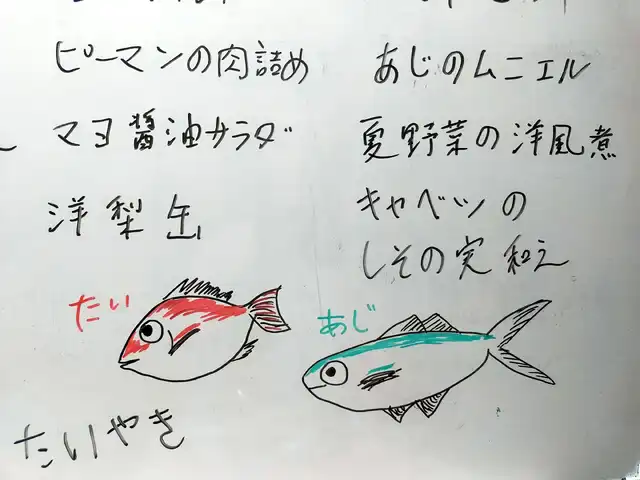 ピーマンの肉詰め
マヨ醤油サラダ
洋梨缶
あじのムニエル
夏野菜の洋風煮
キャベツの
しその実和え
たい
あじ
たいやき